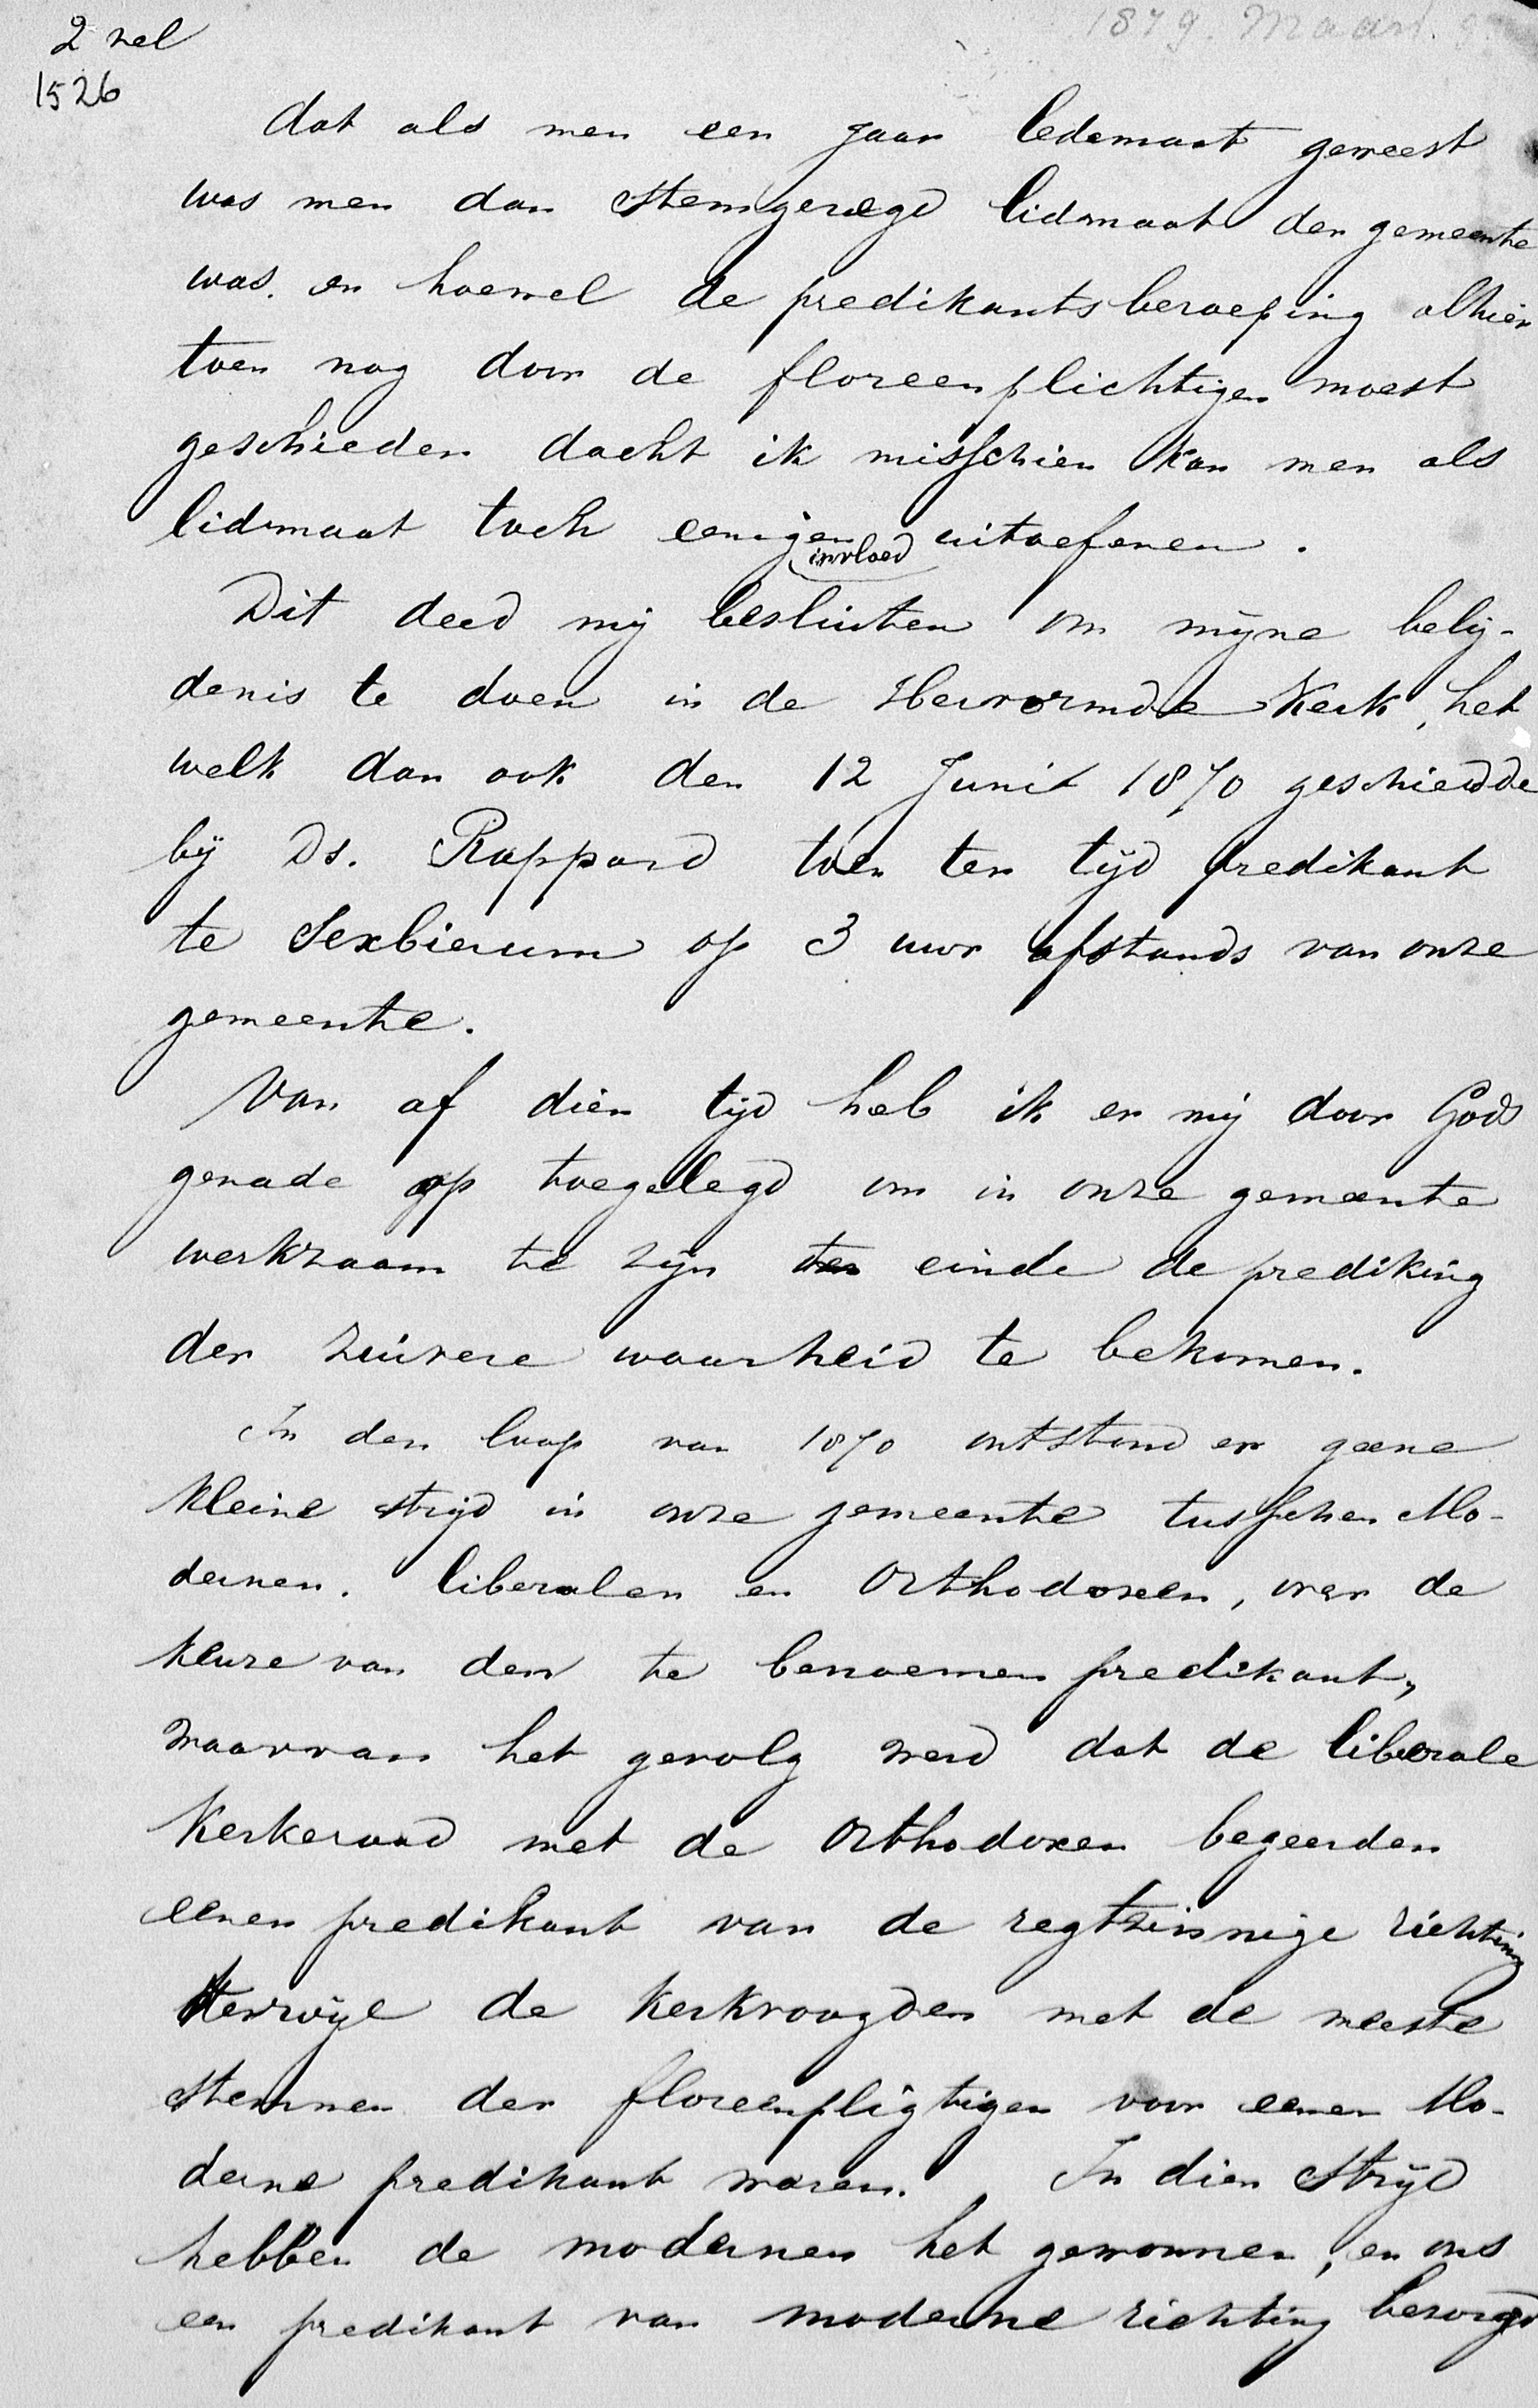 2 vel
1526
1879. Maart.
dat als men een jaar ledemaat geweest
was men dan stemgeregd lidmaat der gemeente
was. en hoewel de predikantsberoeping alhier
toen nog door de floreenplichtigen moest
geschieden dacht ik misschien kan men als
lidmaat toch eenigen invloed uitoefenen.
Dit deed mij besluiten om mijne belij-
denis te doen in de Hervormde Kerk, het
welk dan ook den 12 Junij 1870 geschiedde
bij Ds. Rappard toen ter tijd predikant
te Sexbierum op 3 uur afstands van onze
gemeente.
Van af dien tijd heb ik er mij door Gods
genade op toegelegd om in onze gemeente
werkzaam te zijn ten einde de prediking
der zuivere waarheid te bekomen.
In den loop van 1870 ontstond er geene
kleine strijd in onze gemeente tusschen Mo-
dernen. liberalen en Orthodoxen, over de
keuze van den te benoemen predikant,
waarvan het gevolg werd dat de liberale
Kerkeraad met de Orthodoxen begeerden
eenen predikant van de regtzinnige richting
terwijl de kerkvoogden met de meeste
stemmen der floreenpligtigen voor eenen Mo-
derne predikant waren. In dien Strijd
hebben de modernen het gewonnen, en ons
een predikant van moderne richting bezorgd